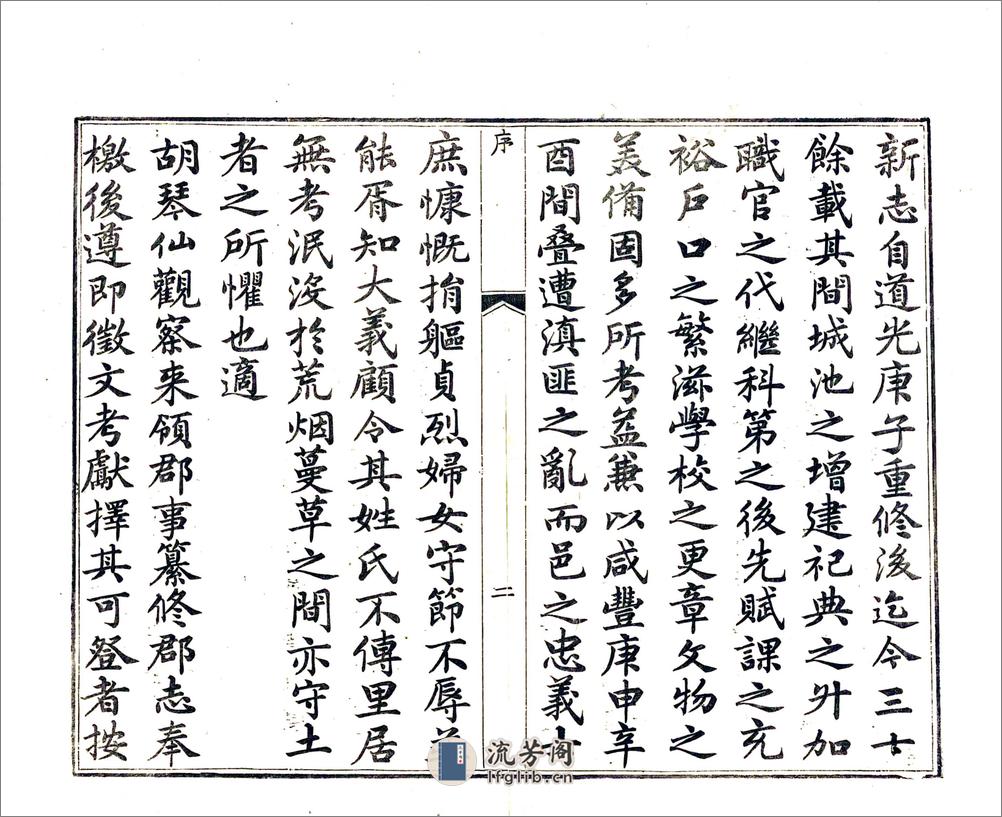 新志自道光庚子重修後迄今三十
餘載其間城池之增建祀典之升加
職官之代繼科第之後先賦課之充
裕戶口之繁滋學校之更章文物之
美備固多所考益兼以咸豐庚申辛
酉間叠遭滇匪之亂而邑之忠義士
序
二
庶慷慨捐軀貞烈婦女守節不辱
能胥知大義顧令其姓氏不傳里居
無考泯沒於荒烟蔓草之間亦守土
者之所懼也適
胡琴仙觀察来領郡事纂修郡志奉
檄後遵即徵文考獻擇其可登者按
流芳阁
lfglib.cn